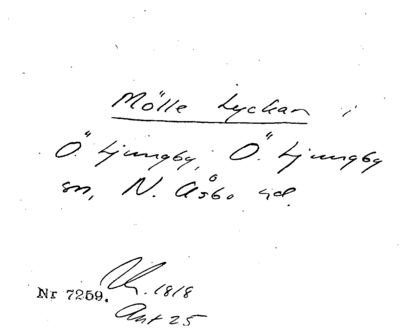 Mölle Lyckan i
Ö. Ljungby, Ö. Ljungby
sn, N. Åsbo hd.
1818
Nr 7259.
Akt 25